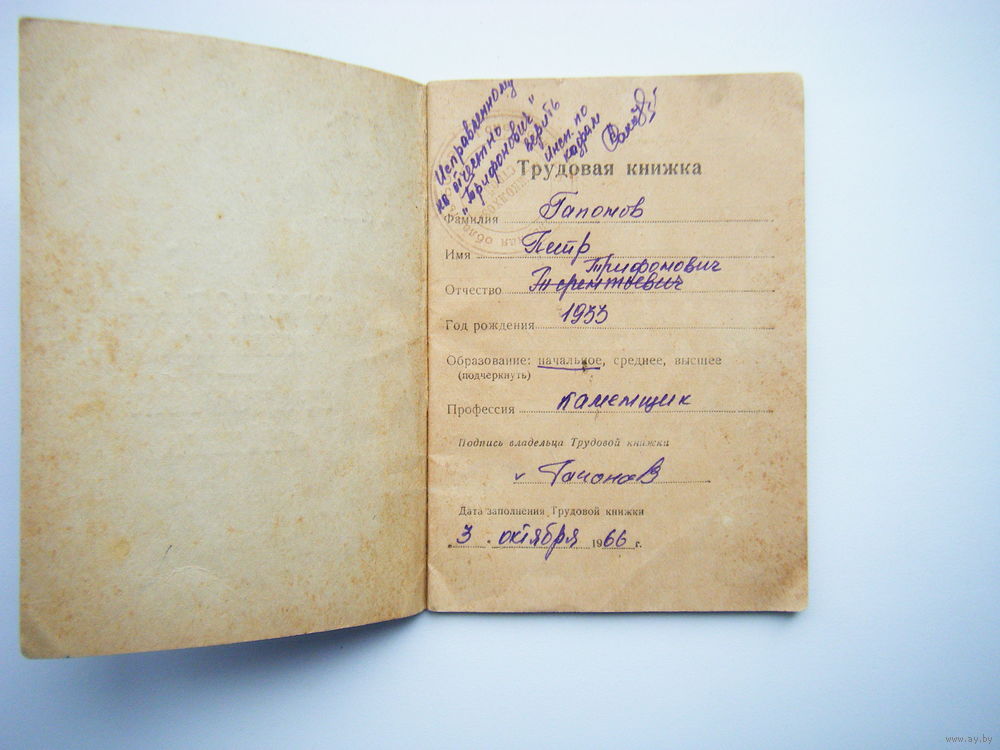 Исправленному
на отчество
"Трифонович"
верить
Инсп. по
кадрам
Трудовая книжка
Фамилия Гапонов
Имя Петр
Трифонович
Отчество Терентьевич
Год рождения 1933
Образование: начальное, среднее, высшее
(подчеркнуть)
Профессия каменщик
Подпись владельца Трудовой книжки
Гапонов
Дата заполнения Трудовой книжки
„3. октября 1966 г.
www.ay.by